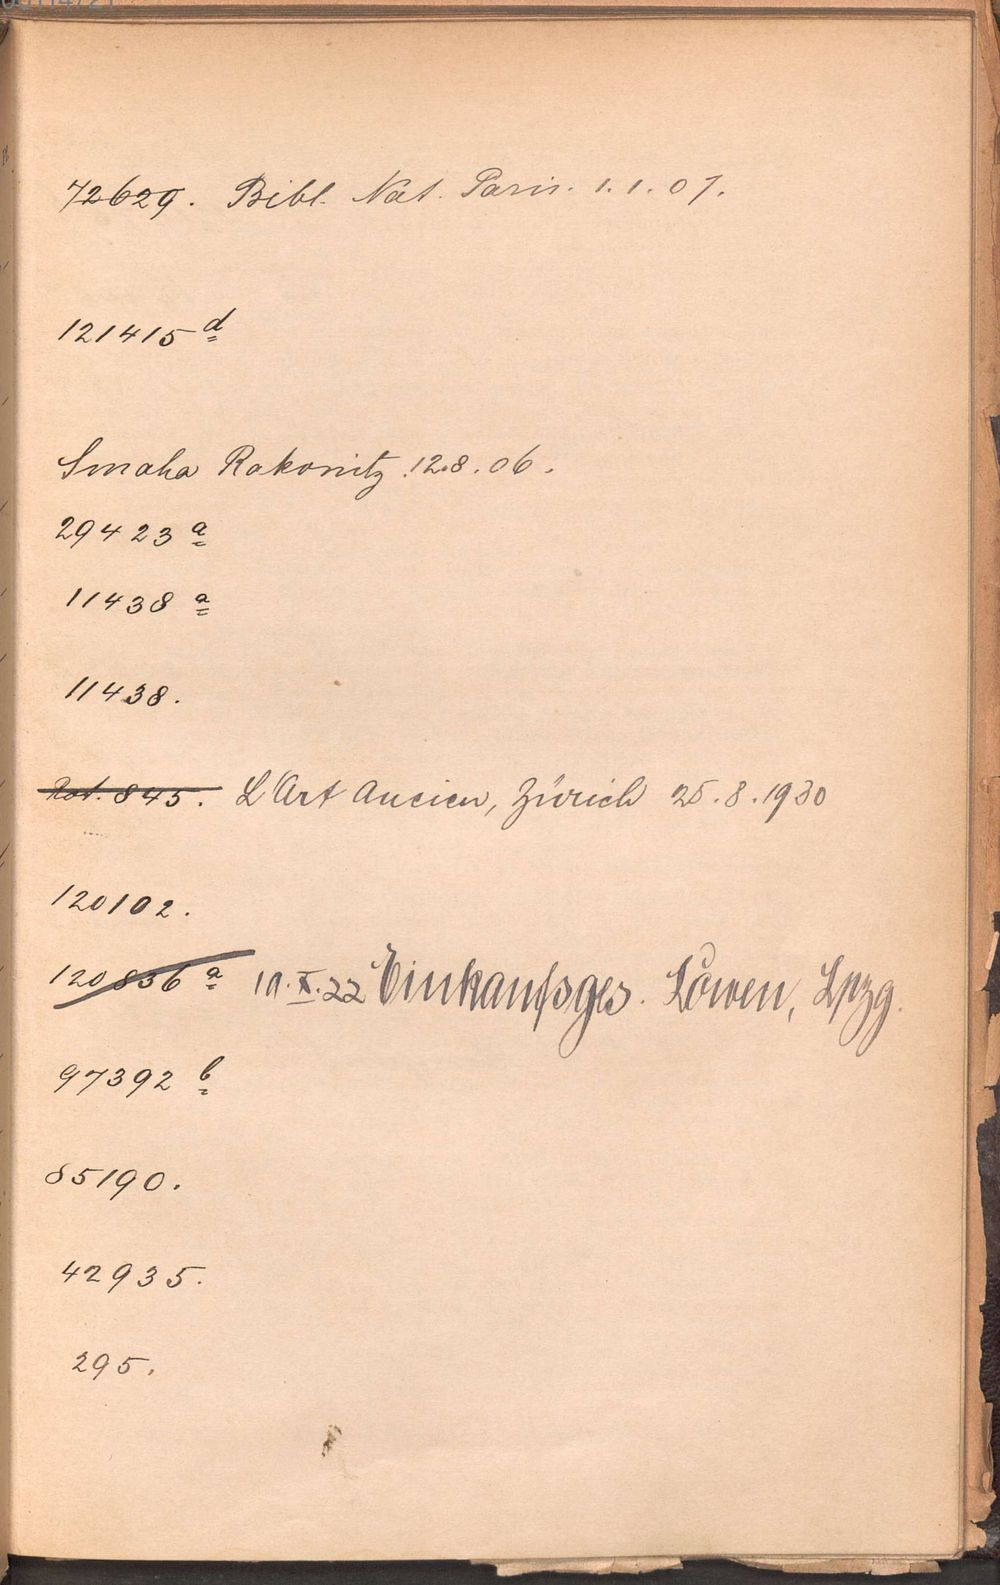 72629. Bibl. Nat. Paris. 1.1.07.
121415 d
Smaha Rakonitz 12.8.06.
29423 a
11438 a
11438.
845. L'Art Ancien, Zürich 25.8.1930
120102.
120836 a 10.X.22 Einkaufsges. Löwen, Lpzg.
97392 b
85190.
42935.
295.